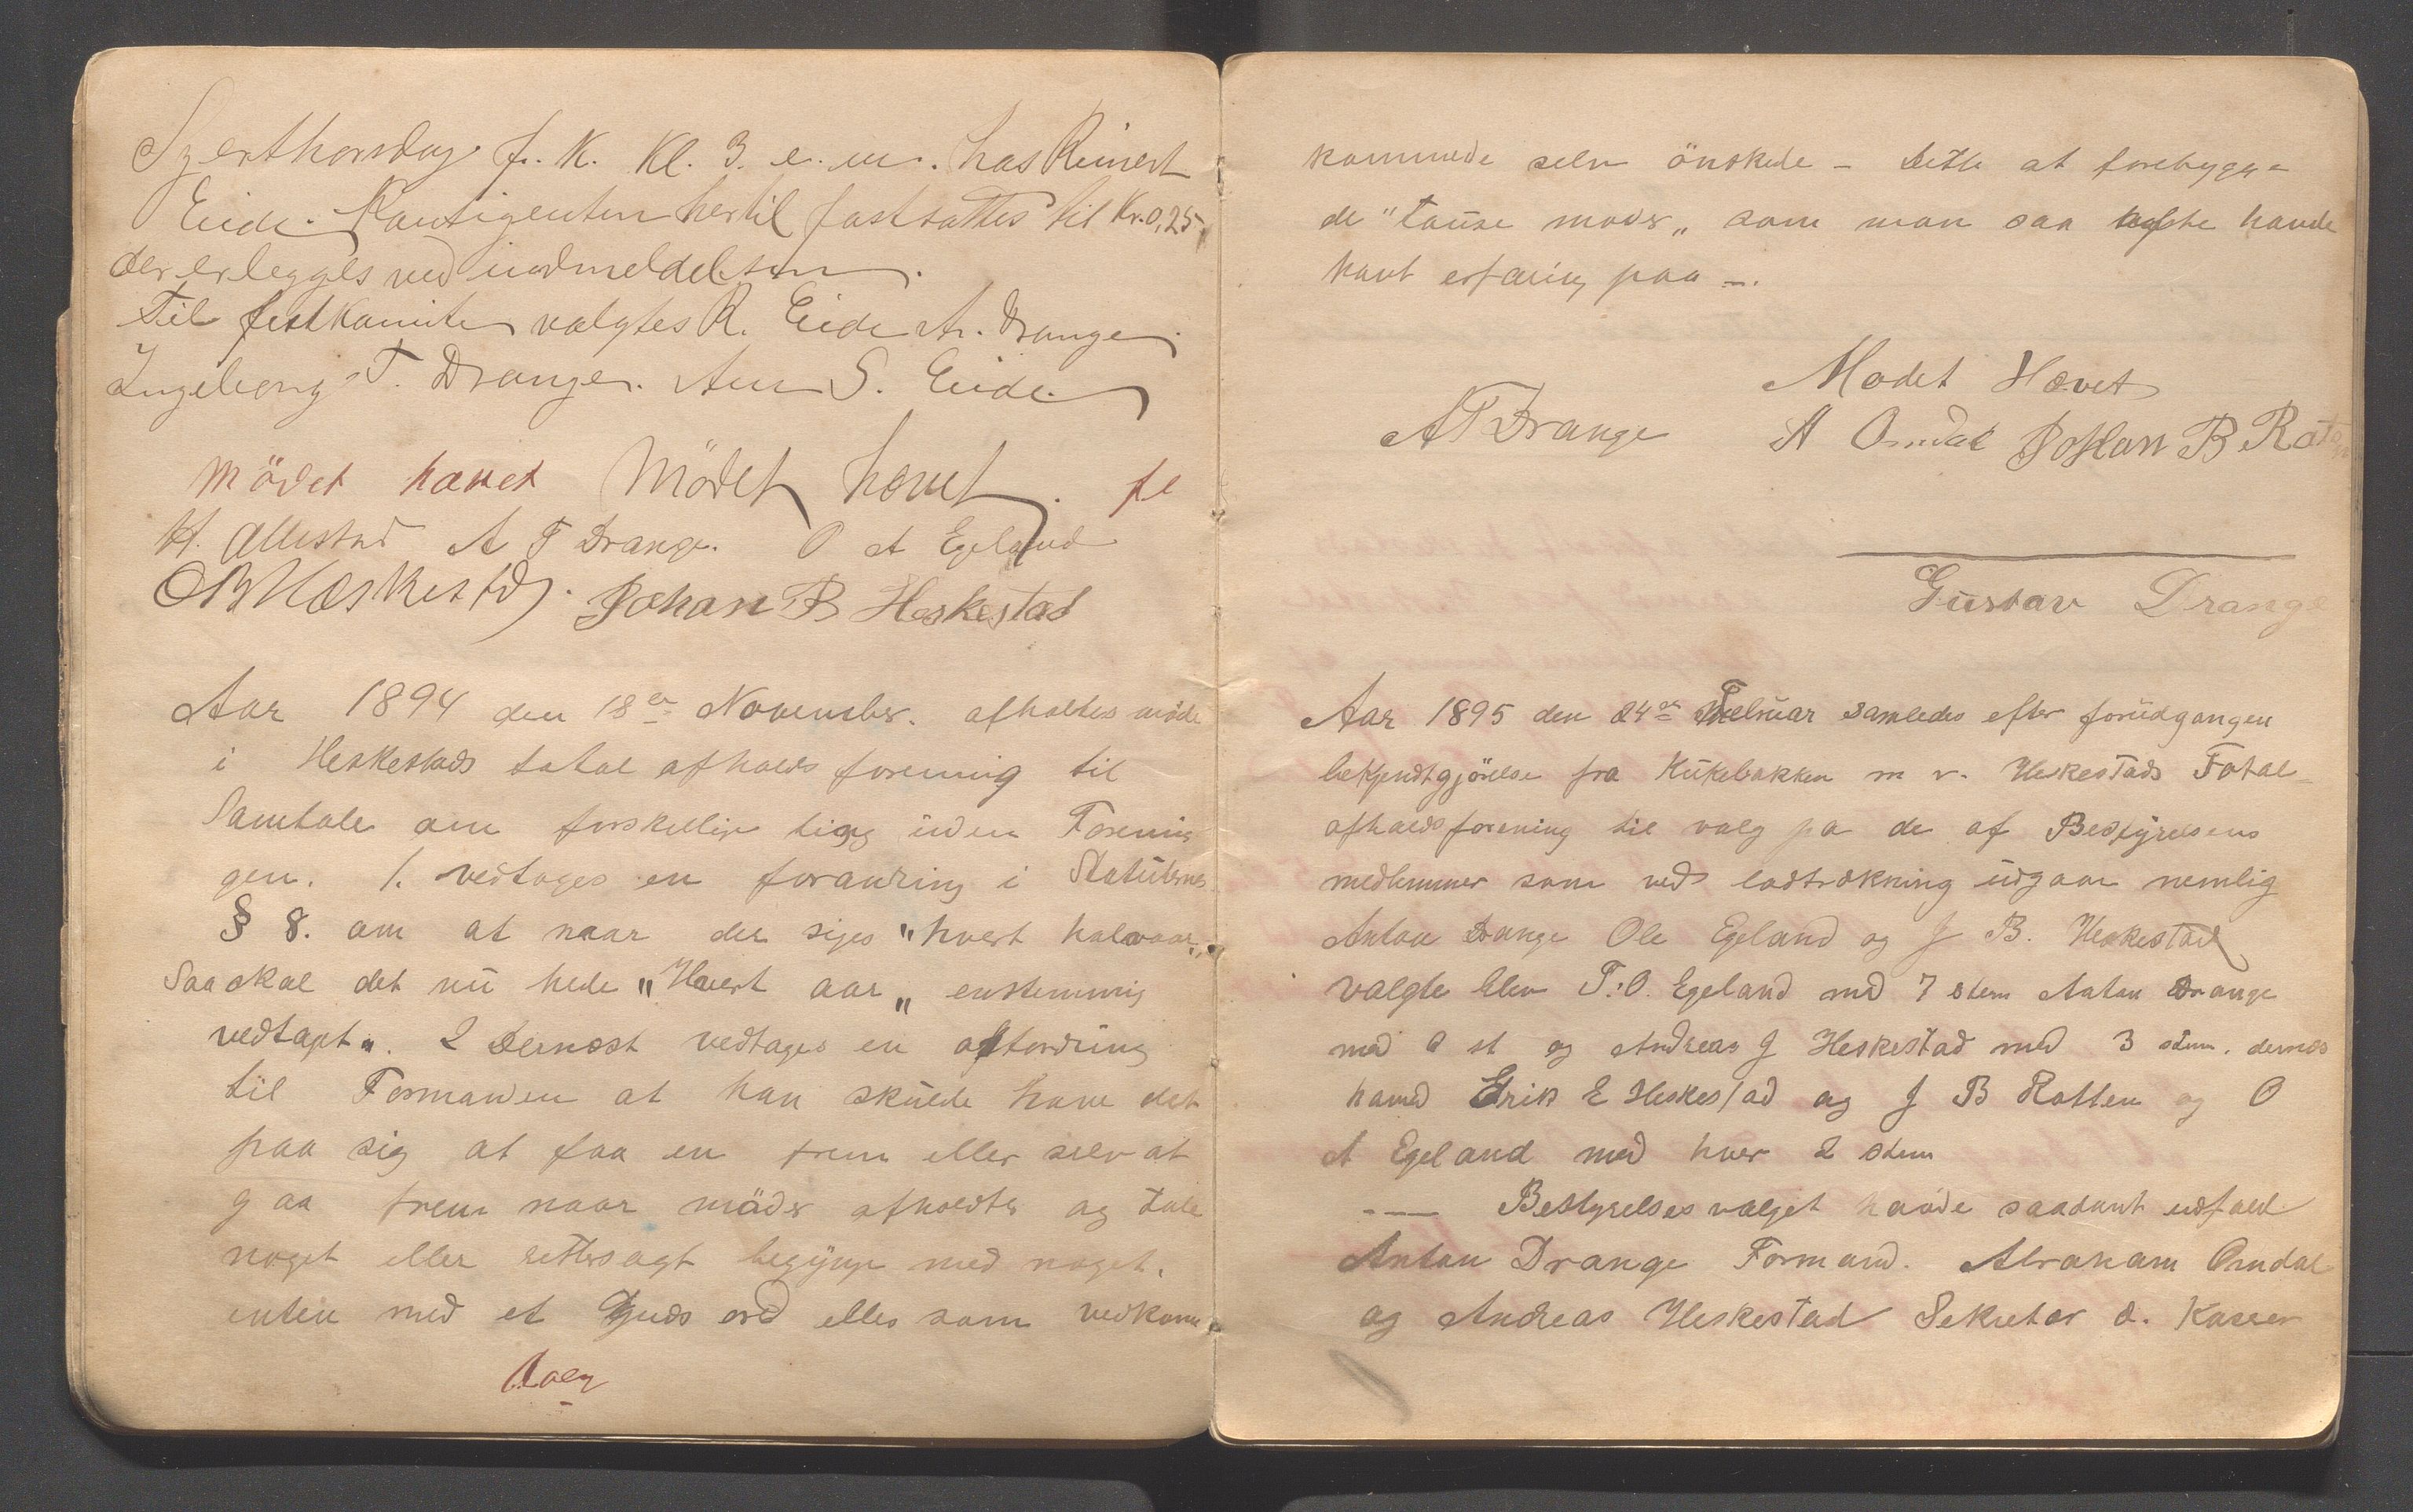 Sjerthorsdag f. K. Kl. 3. e. m. hos Reinert
Eide. Kontigenten hertil fastsattes til Kr. 0,25
der erlegges ved indmeldelsen.
Til festkomite valgtes R. Eide A. Drange
Ingeborg T. Drange. Ane S. Eide
Mödet hævet Mödet hævet. fl
H. Allestad A T Drange. O A Egeland
O B Heskestad. Johan B Heskestad
Aar 1894 den 18de November. afholtes møde
i Heskestads total afholds forening til
Samtale om forskellige ting inden Forenin
gen. 1. vedtoges en forandring i Statuternes
§ 8. om at naar der siges "hvert halvaar„
Saa skal det nu hede "Hvert aar„ enstemmig
vedtagt. 2 Dernæst vedtages en opfordring
til Formanden at han skulde have det
paa sig at faa en frem eller selv at
gaa frem naar möder afholdtes og tale
noget eller rettersagt begynne med noget.
enten med et Guds ord eller som vedkom
kommende selv önskede - Dette at forebygge-
de "tause moder„ som man saa ofte havde
havt erfaring paa -.
Modet Hævet
A T Drange A Omdal Johan B Raten
Gustav Drange
Aar 1895 den 24de Februar samledes efter forudgangen
bekjendtgjörelse fra Kirkebakken m v. Heskestads Total
afholdsforening til valg pa de af Bestyrelsens
medlemmer som ved lodtrækning udgaar nemlig
Anton Drange Ole Egeland og J B. Heskestad
valgte blev T. O. Egeland med 7 stem Anton Drange
med st og Andreas J Heskestad med 3 stem. dernæs
havd Erik E Heskestad og J B Ratten og O
A Egeland med hver 2 stem
--- Bestyrelses valget havde saadant udfald
Anton Drange Formand. Abraham Omdal
og Andreas Heskestad Sekretær o. Kasser